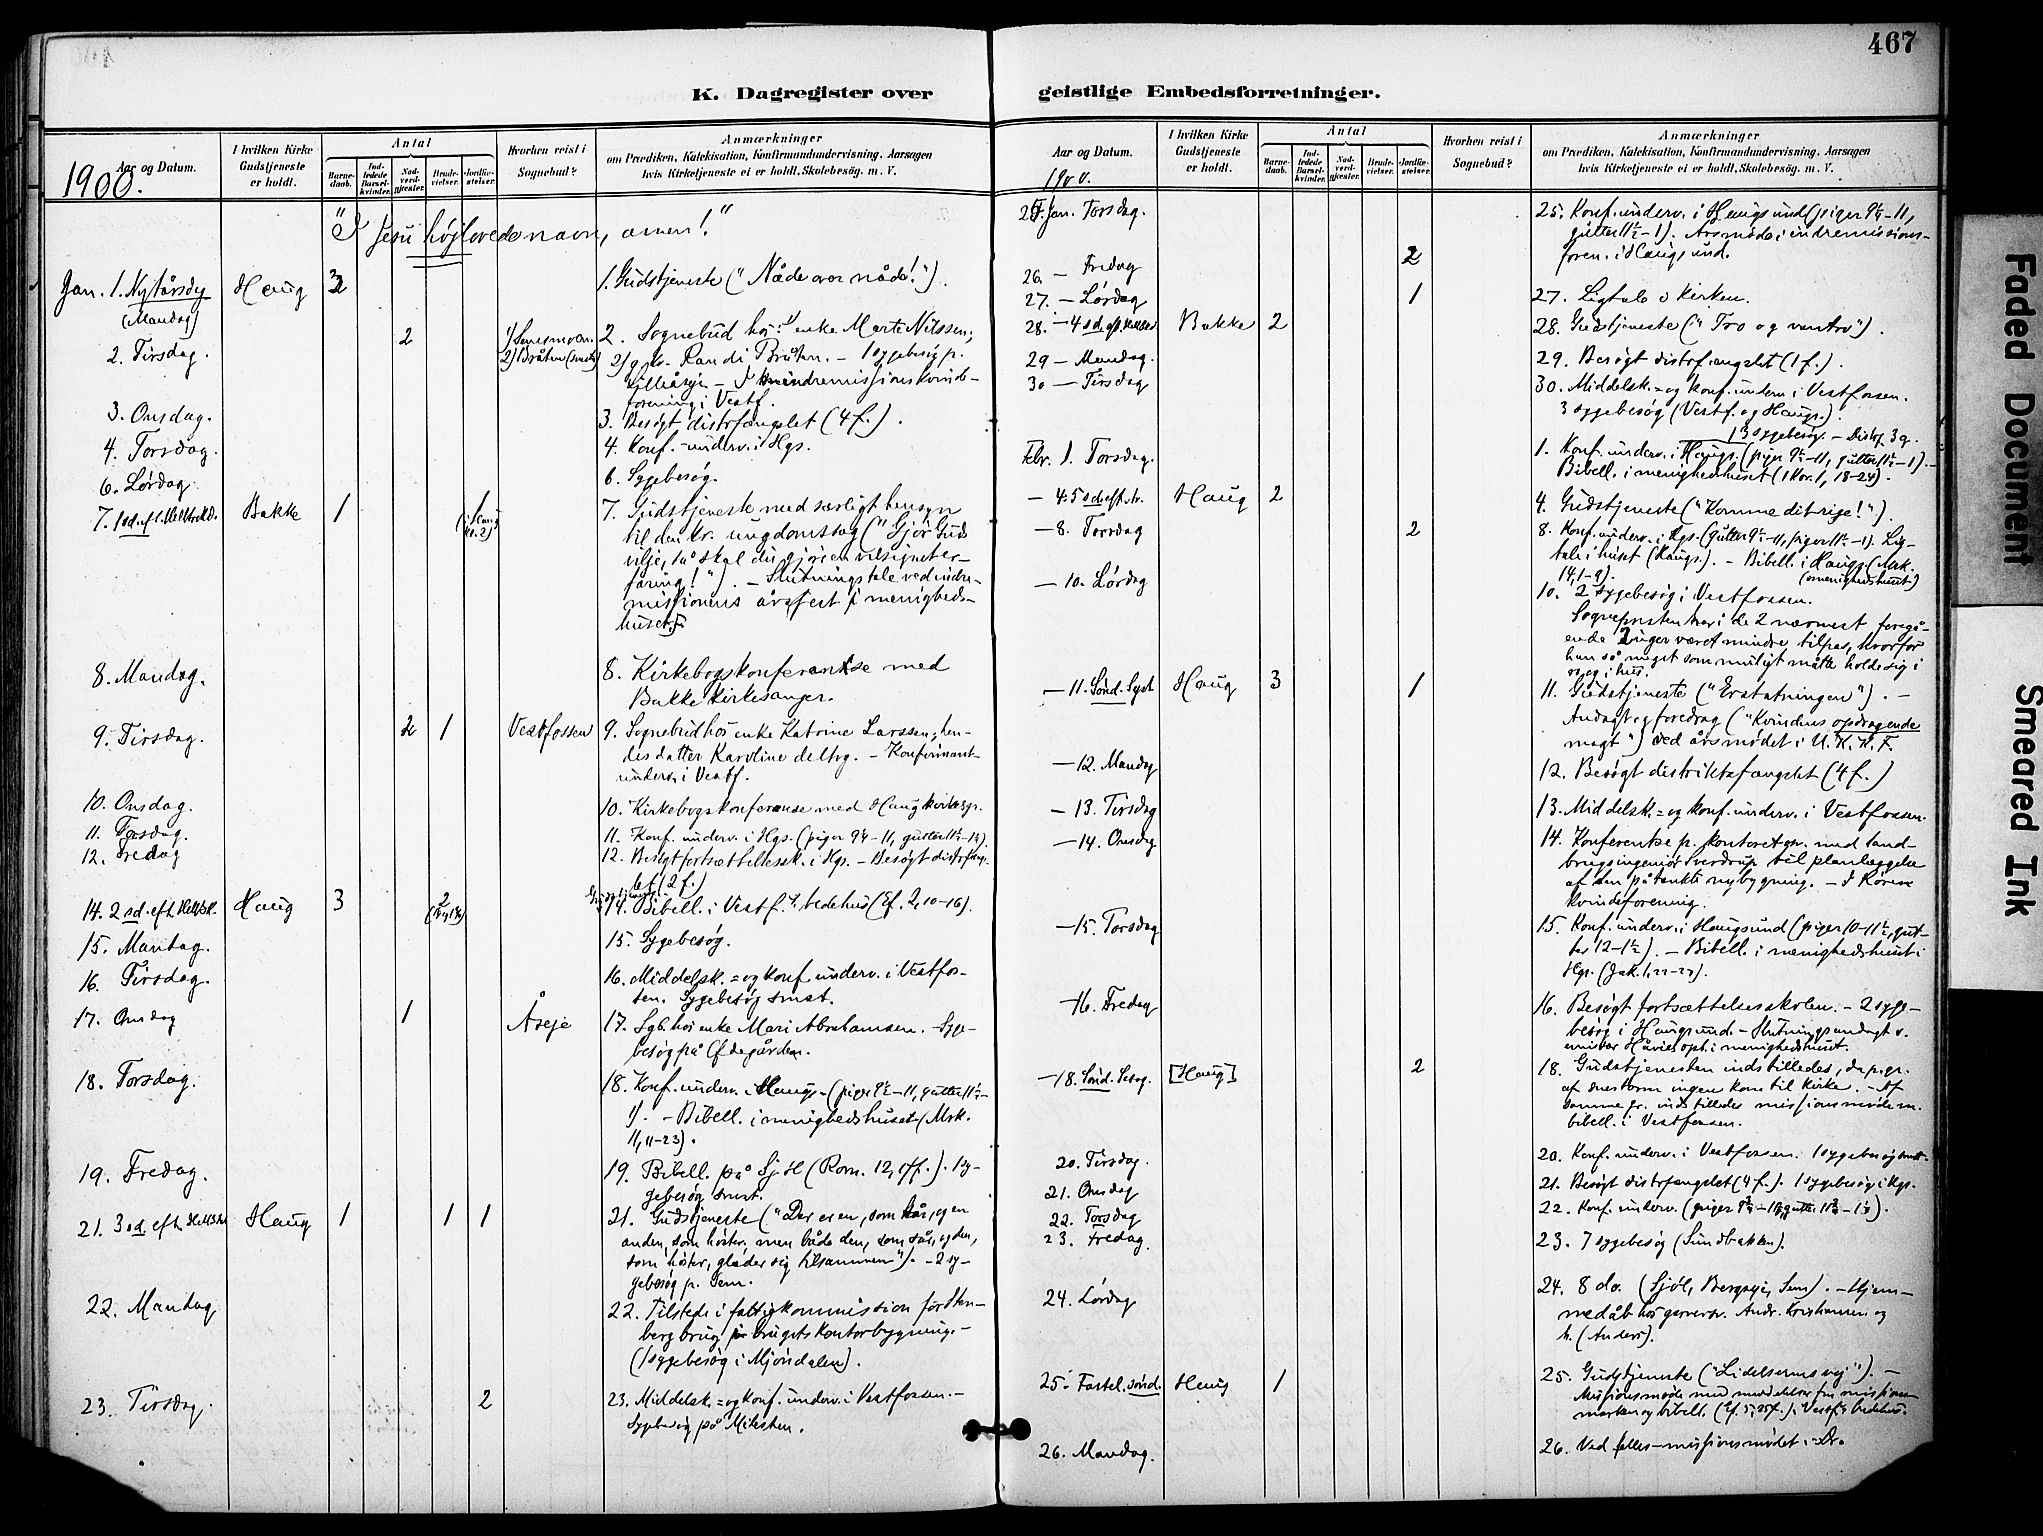 467
K. Dagregister over
Aar og Datum.
1900.
I hvilken Kirke
Gudstjeneste
er holdt.
Antal
Barne-
daab.
Ind-
ledede
Barsel-
kvinder.
Nad-
verd-
gjester.
Brude-
vielser.
Jordfæ-
stelser.
Hvorhen reist i
Sognebud?
Anmærkninger
om Prædiken, Katekisation, Konfirmandundervisning, Aarsagen
hvis Kirketjeneste ei er holdt, Skolebesøg. m. V.
"I Jesu højlovede navn, amen!"
Jan. 1. Nytårsdg
(Mandag)
Haug
1. Gudstjeneste ("Nåde over nåde!").
2. Tirsdag.
2
2. Sognebud hos 1) enke Marte Nilssen;
forening i Vestf.
3. Onsdag.
3. Besøgt distrfængslet (4 f.).
4. Torsdag.
4. Konf.-underv. i Hgs.
6. Lørdag
6. Sygebesøg.
7. 1 sd. ef t. Hell3krd.
Bakke
1
7. Gudstjeneste med særligt hensyn
til den kr. ungdomssag ("Gjør Guds
vilje, så skal du gjøre en velsignet er-
faring!"). – Slutningstale ved indre-
missionens årsfest i menigheds-
huset.
8. Mandag.
8. Kirkebogskonferentse med
Bakke kirkesanger.
9. Tirsdag.
2
1
Vestfossen
9. Sognebud hos enke Katrine Larssen; hen-
des datter Karoline deltog. – Konfirmant-
underv. i Vestf.
10. Onsdag.
10. Kirkebogskonferense med Haug kirkesgr.
11. Torsdag.
11. Konf. underv. i Hgs. (piger 9½–11, gutter 11½–1).
12. Fredag
12. Besøgt fortsættelsessk. i Hgs. – Besøgt distrfængs-
let (2 f.)
14. 2 sd. eft. Hell3k.
Haug
3
14. Bibell. i Vestf. s bedehus (Ef. 2, 10–16).
15. Mandag.
15. Sygebesøg.
16. Tirsdag.
16. Middelsk.= og konf. underv. i Vestfos-
sen. Sygebesøg smst.
17. Onsdag
1
Åseje
17. Sgb. hos enke Mari Abrahamsen. Syge-
besøg på Øfdegården.
18. Torsdag.
18. Konf. underv. i Haugs. (piger 9½–11, gutter 11½–
1). – Bibell. i menighedshuset (Mrk.
11, 11–23).
19. Fredag.
19. Bibell. på Sj H (Rom. 12, 1ff.). 1 sy-
gebesøg smst.
21. 3 sd. eft. Hell3k
Haug
1
1
1
21. Gudstjeneste ("Der er en, som sår, og en
anden, som høster, men både den, som sår, og den,
som høster, glæder sig tilsammen"). – 2 sy-
gebesøg p. Sem.
22. Mandag
22. Tilstede i fattigkommission for Sten-
berg brug på brugets kontorbygning. –
(1 sygebesøg i Mjøndalen).
23. Tirsdag.
2
23. Middelsk.= og konf. underv. i Vestfossen. –
Sygebesøg på Milesten.
geistlige Embedsforretninger.
Aar og Datum.
1900.
I hvilken Kirke
Gudstjeneste
er holdt.
Antal
Barne-
daab.
Ind-
ledede
Barsel-
kvinder.
Nad-
verd-
gjester.
Brude-
vielser.
Jordfæ-
stelser.
Hvorhen reist i
Sognebud?
Anmærkninger
om Prædiken, Katekisation, Konfirmandundervisning, Aarsagen
hvis Kirketjeneste ei er holdt, Skolebesøg. m. V.
25. Jan. Torsdag.
25. Konf. underv. i Haugsund (piger 9½–11,
gutter 11½–1). Årsmøde i indremissions-
foren. i Haugsund.
26. – Fredag
2
27. – Lørdag
1
27. Ligtale i kirken.
28. – 4 sd. eft. Hell3k
Bakke
2
28. Gudstjeneste ("Tro og vantro").
29 – Mandag.
29. Besøgt distrfængslet (1 f.).
30 – Tirsdag
30. Middelsk.= og konf. underv. i Vestfossen.
3 sygebesøg (Vestf. og Haugs.).
Febr. 1. Torsdag.
13 sygebesøg. – Distrf. 3 g.
1. Konf. underv. i Haugs. (piger 9½–11, gutter 11½–1). –
Bibell. i menighedshuset (1 Kor. 1, 18–24).
– 4. 5 sd. eft. tr.
Haug
2
4. Gudstjeneste ("Komme dit rige!").
– 8. Torsdag
2
8. Konf. underv. i Hgs. (gutter 9½–11, piger 11½–1). Lig-
tale i huset (Haugs.). – Bibell. i Haugs. (Mrk.
14, 1–9). (menighedshuset)
– 10. Lørdag
10. 2 sygebesøg i Vestfossen.
Sognepresten har i de 2 nærmest foregå-
ende uger været mindre tilpas, hvorfor
han så meget som muligt måtte holde sig i
ro og i hus.
– 11. Sønd. Sept
Haug
3
1
11. Gudstjeneste ("Erstatningen"). –
Andagt og foredrag ("Kvindens opdragende
magt") ved årsmødet i U. K. K. F.
– 12. Mandag
12. Besøgt distriktsfængslet (4 f.)
– 13. Tirsdag
13. Middelsk.= og konf. underv. i Vestfossen.
– 14. Onsdag
14. Konferentse p. kontoret gr. med land-
brugsingeniør Verdrup til planlæggelse
af den påtænkte nybygning. – I Kørene
kvindeforening.
– 15. Torsdag
15. Konf. underv. i Haugsund (piger 10–11½, gut-
ter 12–1½). – Bibell. i menighedshuset i
Hgs. (Jak. 1, 22–27).
– 16. Fredag
16. Besøgt fortsættelsesskolen. – 2 syge-
besøg i Haugsund – Slutningsandagt v.
emissær Håvies opt. i menighedshuset.
– 18. Sønd. Sexag.
[Haug]
2
18. Gudstjenesten indstilledes, da p. gr.
af snestorm ingen kom til kirke. – Af
samme gr. indstilledes missionsmøde m.
bibell. i Vestfossen.
20. Tirsdag.
20. Konf. underv. i Vestfossen. 1 sygebesøg smst.
21. Onsdag
21. Besøgt distrfængslet (4 f.). 1 sygebesøg i Hgs.
22. Torsdag
22. Konf. underv. (piger 9½–11, gutter 11½–1).
23. Fredag.
23. 7 sygebesøg (Sundbakken).
24. Lørdag
24. 8 do. (Sjøl, Bergseje, Sem). – Hjem-
medåb hos garverer. Andr. Kristiansen og
h. (Anders).
25. Fastel. sønd.
Haug
1
25. Gudstjeneste ("Lidelsernes vej"). –
Missionsmøde med meddelelser fra missions-
marken og bibell. (Ef. 5, 25 f.) i Vestf.s bedehus.
26. Mandag.
26. Ved fælles-missionsmødet i Dr.
Faded Document
Smeared Ink